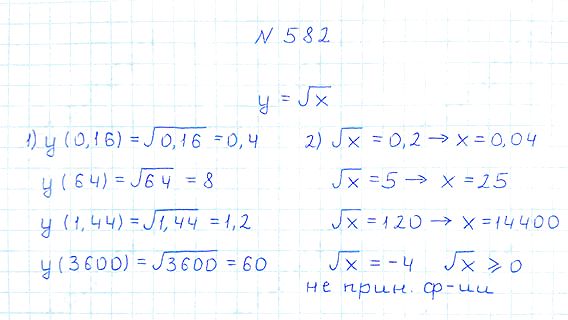 N 582
y = √x
1) y (0,16) = √0,16 = 0,4
y (64) = √64 = 8
y (1,44) = √1,44 = 1,2
y (3600) = √3600 = 60
2) √x = 0,2 → x = 0,04
√x = 5 → x = 25
√x = 120 → x = 14400
√x = -4 √x ⩾ 0
не прин. ф-ии